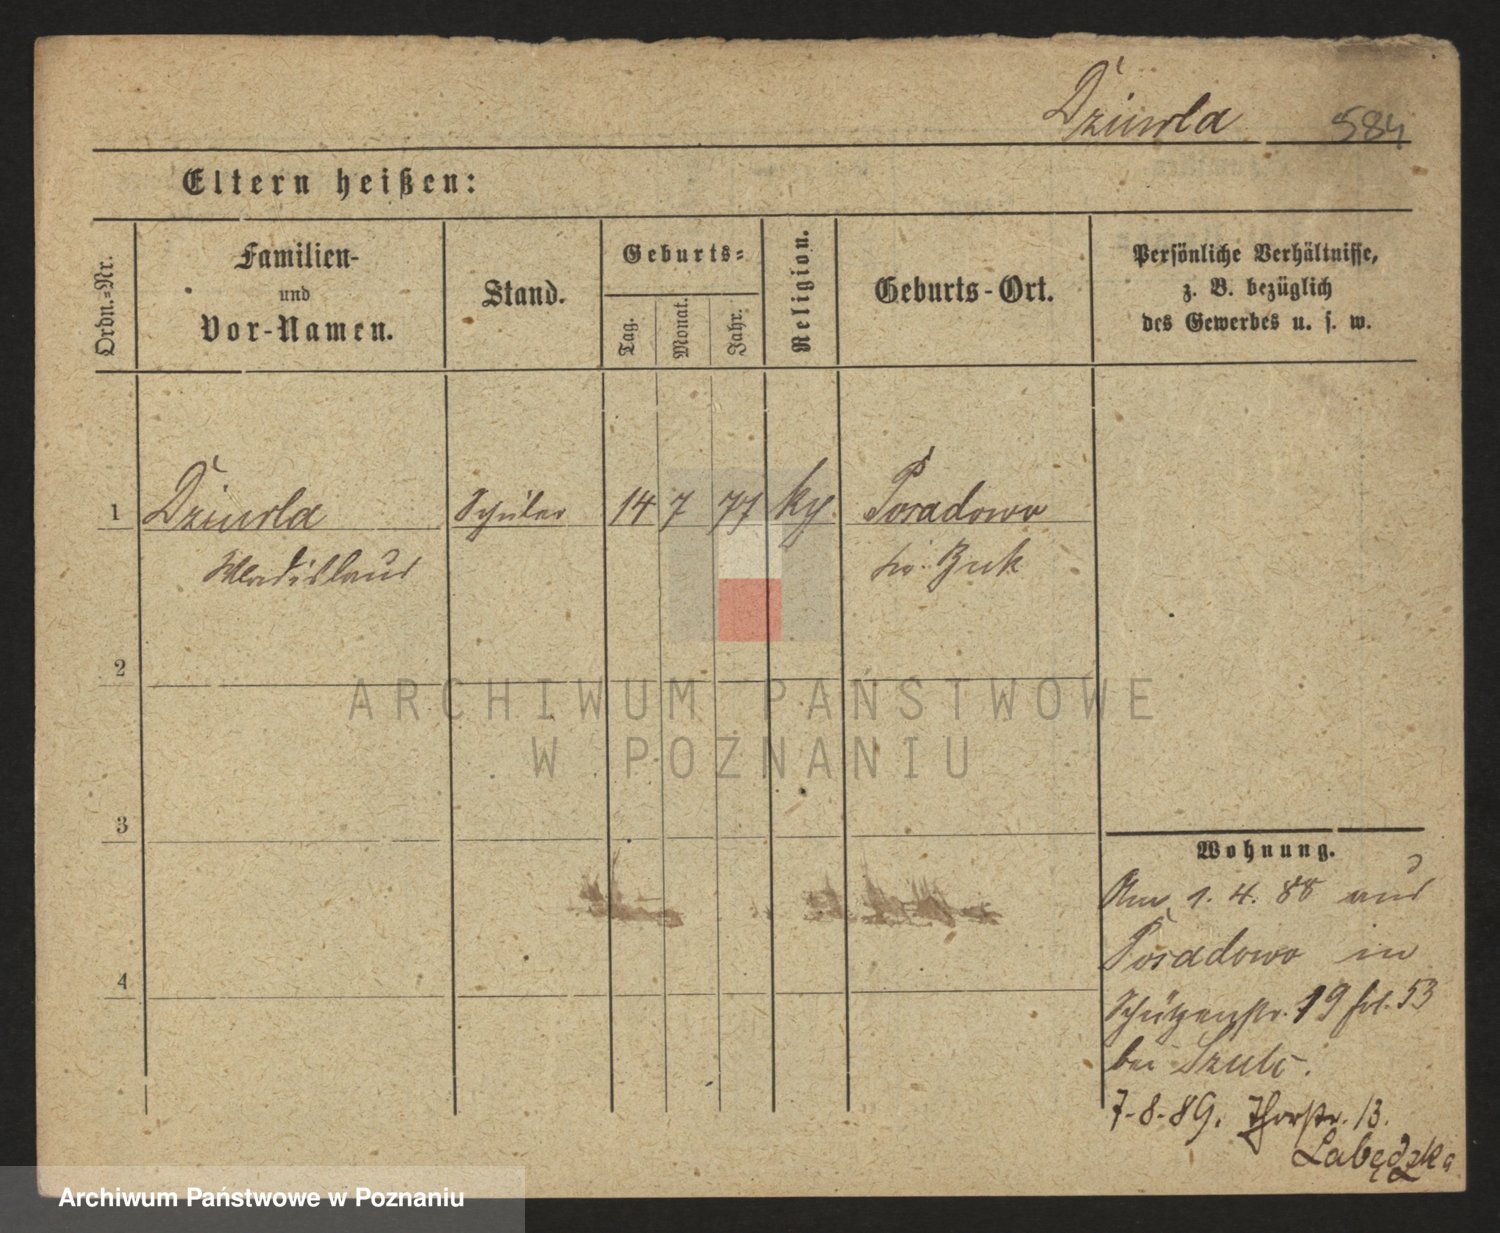 Dziurla 584
Eltern heißen:
Ordn.=Nr.
Familien-
und
Vor-Namen.
Stand.
Geburts=
Tag.
Monat.
Jahr.
Religion.
Geburts-Ort.
Persönliche Verhältnisse,
z. B. bezüglich
des Gewerbes u. s. w.
1 Dziurla Schüler 14 7 77 kg Posadowo
Wladislaus Kr. Buk
2
3
4
Wohnung.
Am 1. 4. 88 aus
Posadowo in
Schützenstr. 19 frl. 53
bei Szulc.
7-8-89. Thorstr. 13.
Łabędzka
ARCHIWUM PAŃSTWOWE
W POZNANIU
Archiwum Państwowe w Poznaniu